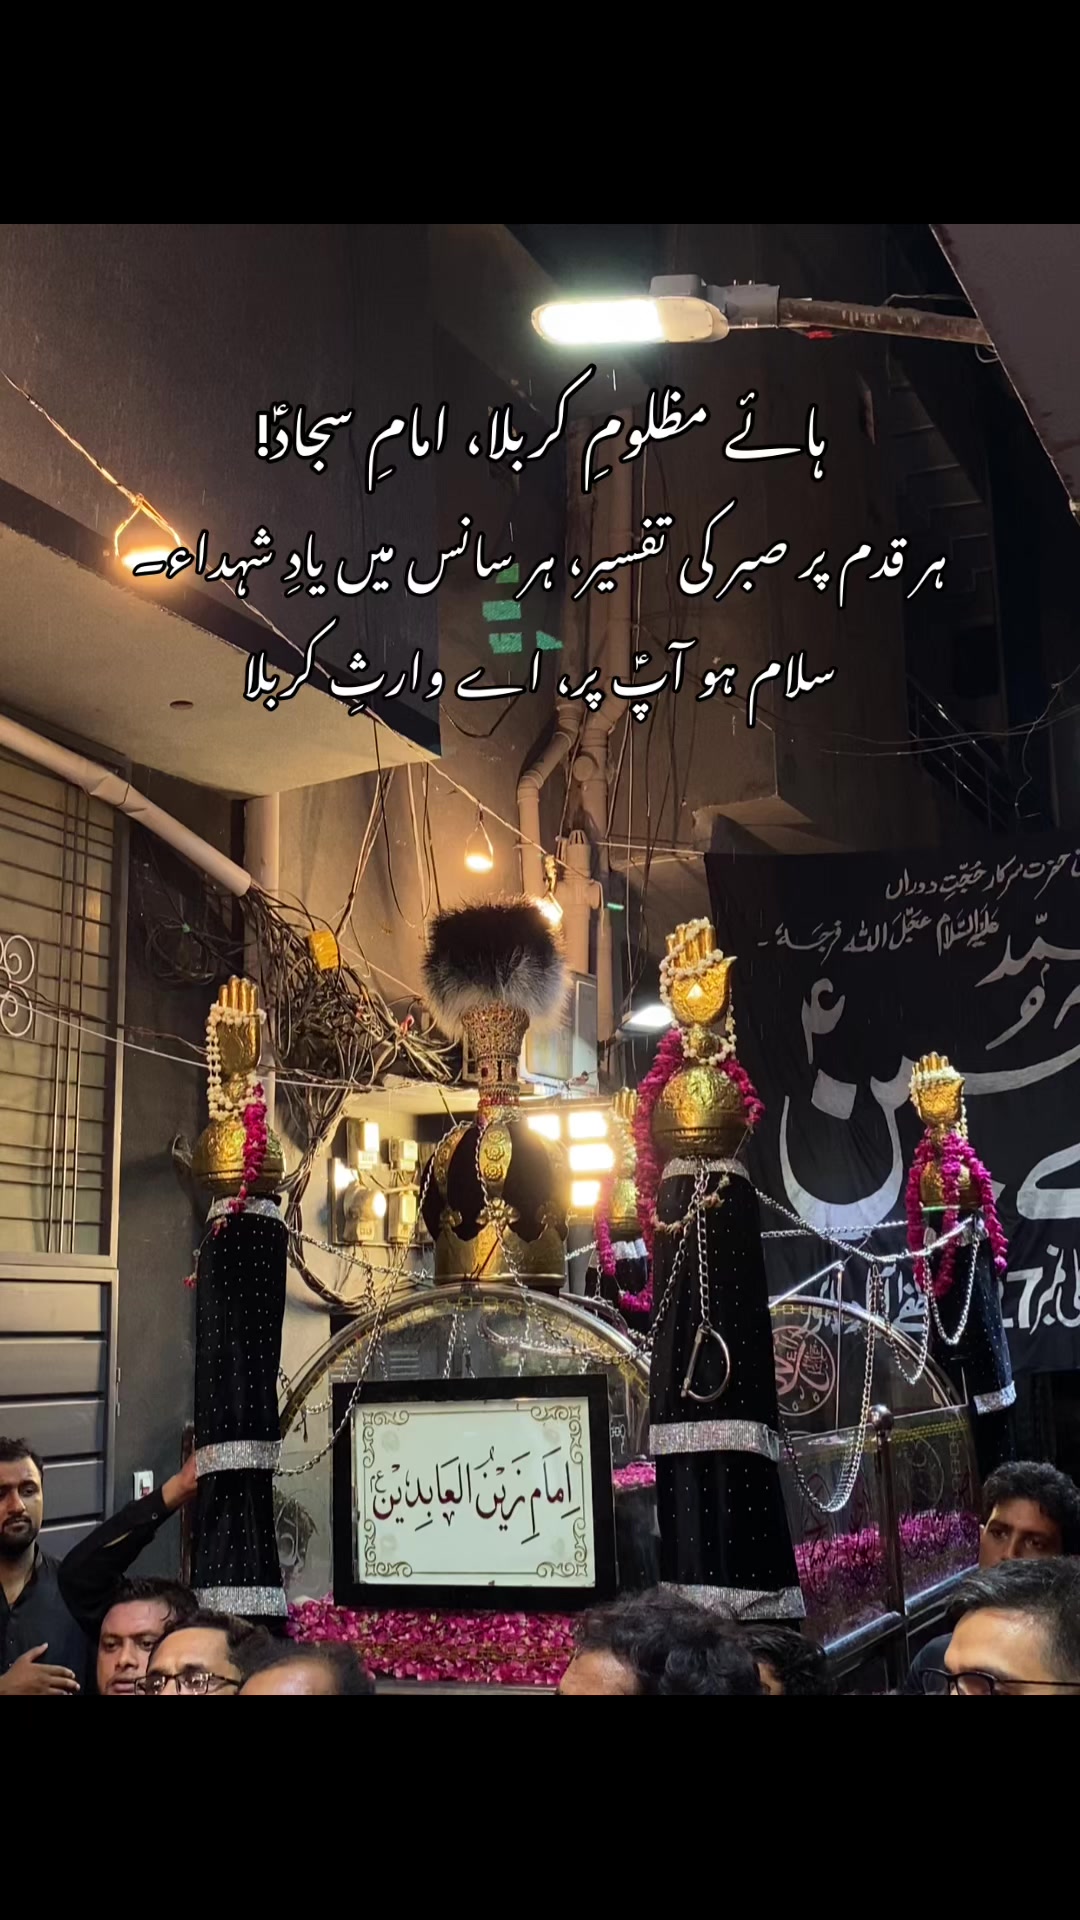 ہائے مظلومِ کربلا، امامِ سجادؑ!
ہر قدم پر صبر کی تفسیر، ہر سانس میں یادِ شہداء۔
سلام ہو آپؑ پر، اے وارثِ کربلا
حضرت سرکار حُجّتِ دوراں
عَلَیْہِ السَّلَام عَجَّلَ اللہ فَرَجَہٗ ۔
27
اِمَامِ زَیْنُ الْعَابِدِیْن ع